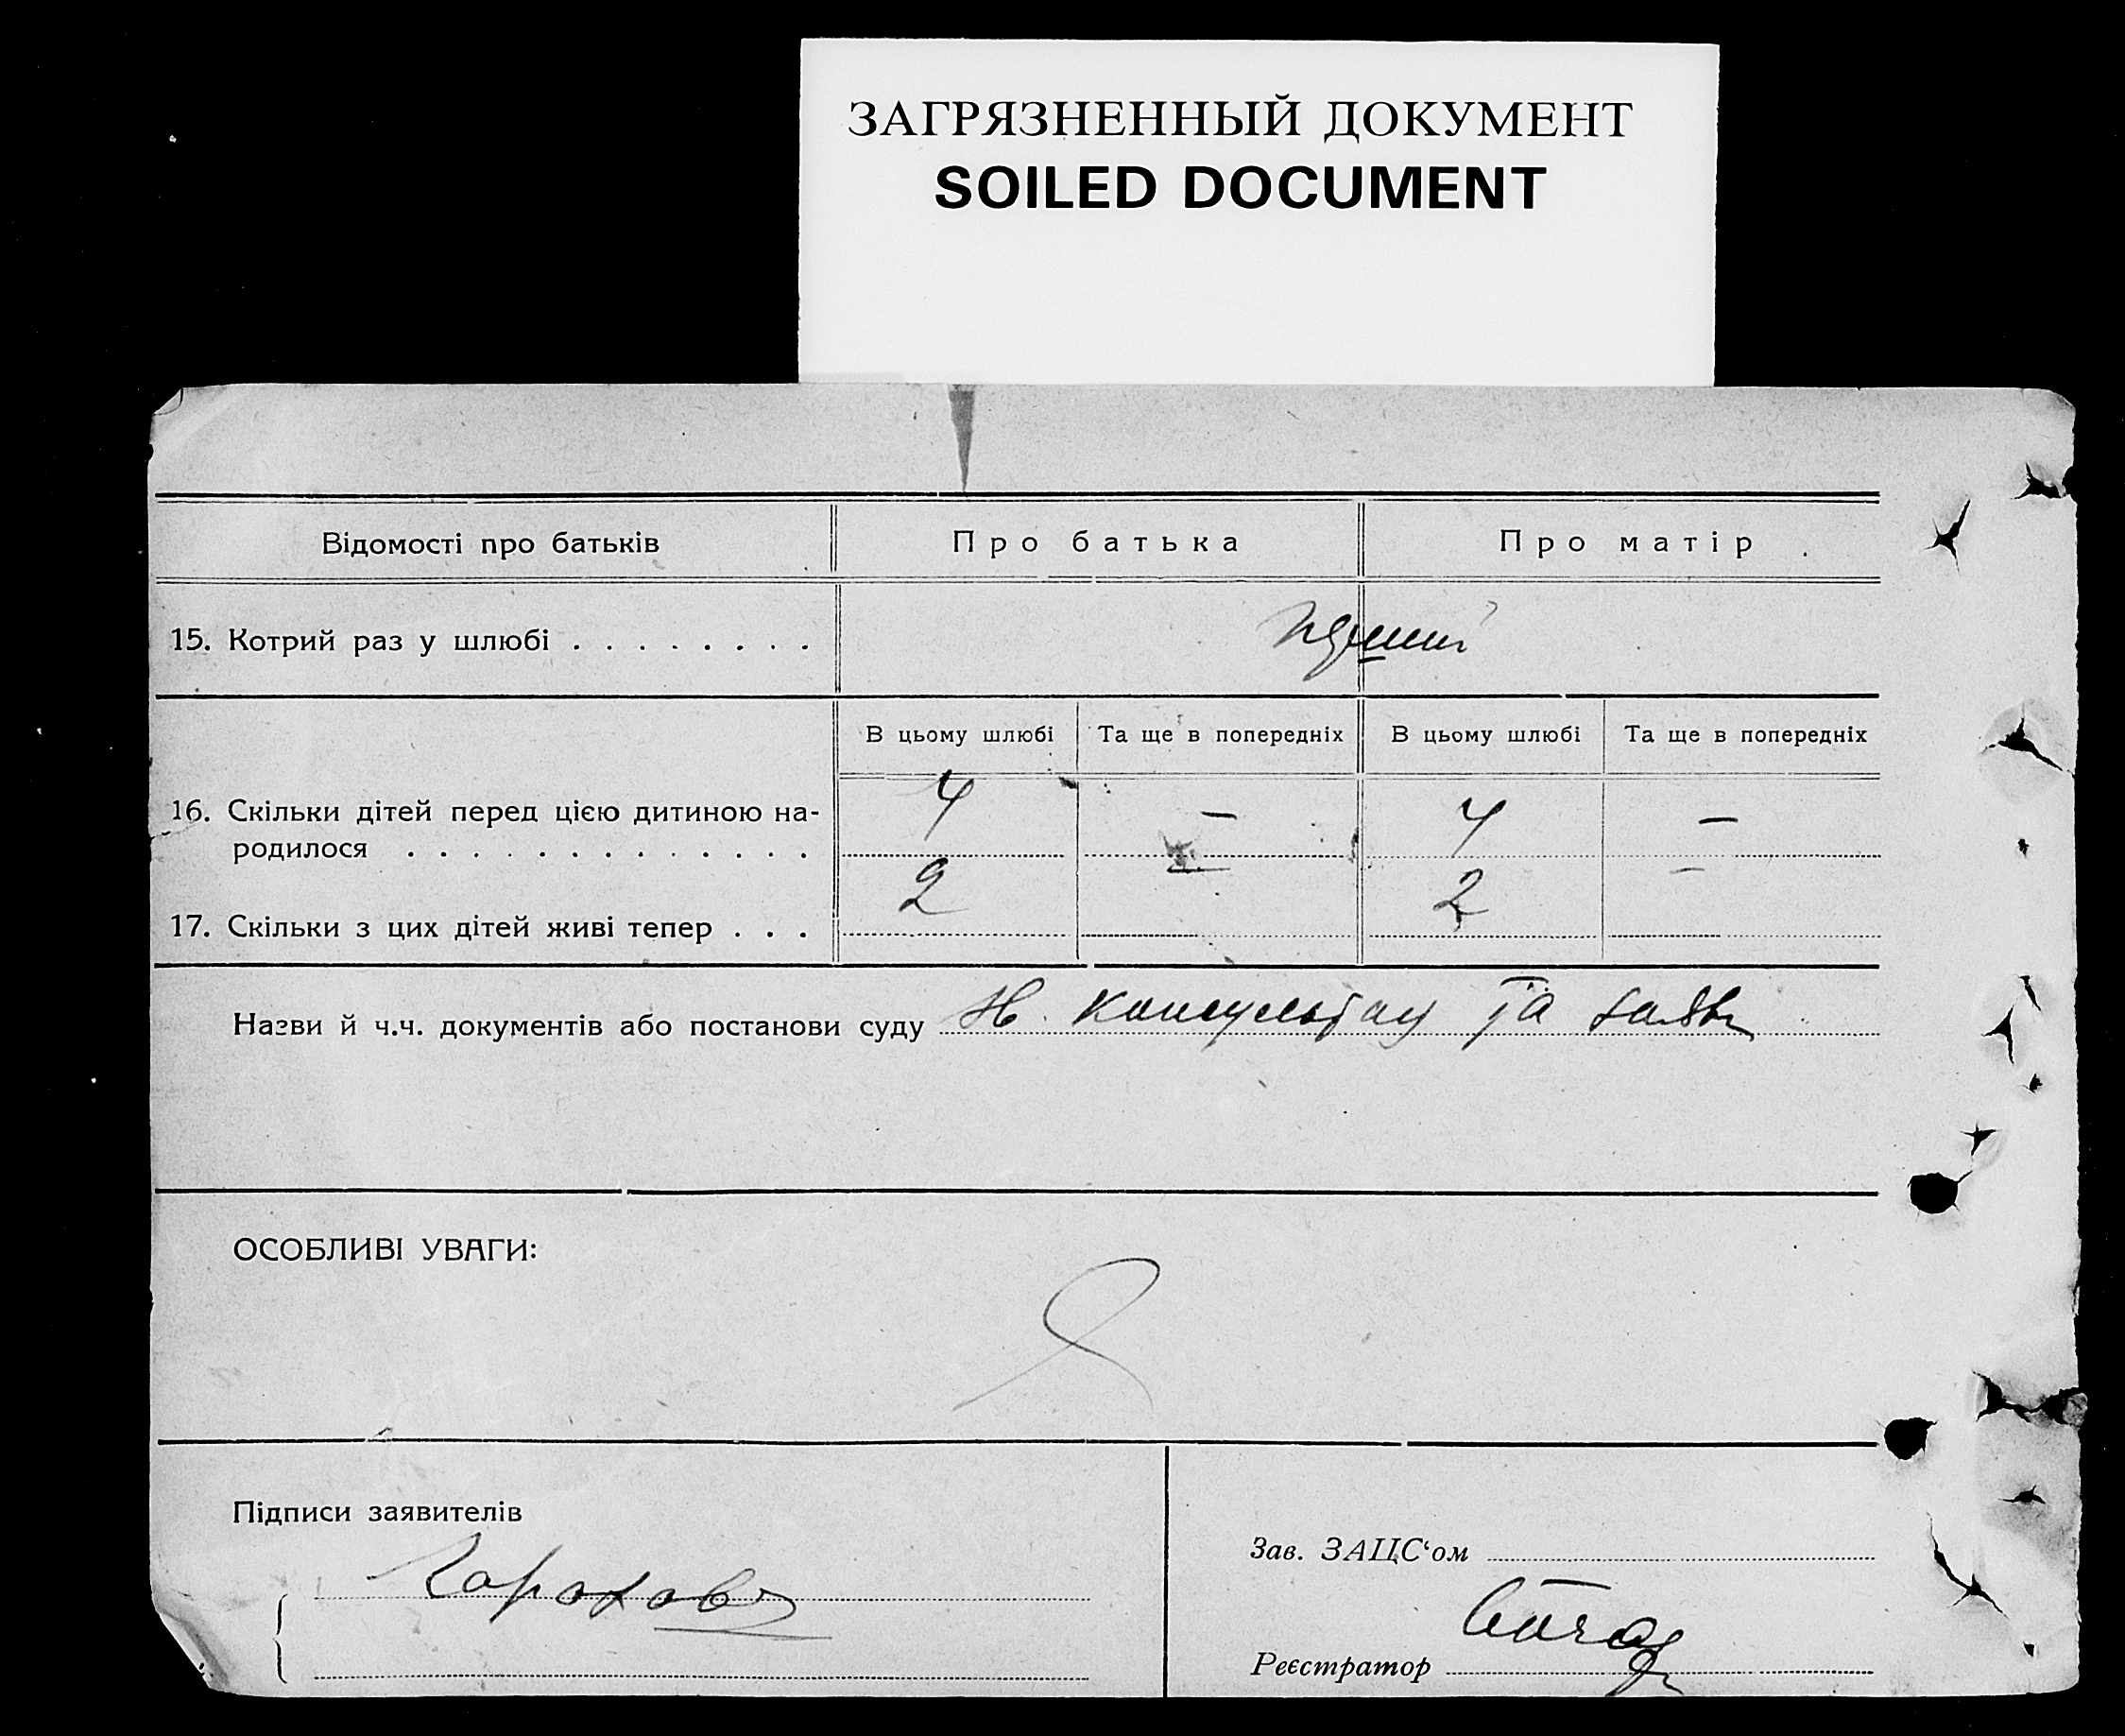 ЗАГРЯЗНЕННЫЙ ДОКУМЕНТ
SOILED DOCUMENT
Відомості про батьків
Про батька
Про матір
15. Котрий раз у шлюбі . . . . . . . .
В цьому шлюбі
Та ще в попередніх
В цьому шлюбі
Та ще в попередніх
16. Скільки дітей перед цією дитиною на-
родилося . . . . . . . . . . . . .
4 — 4 —
17. Скільки з цих дітей живі тепер . . .
2 — 2 —
Назви й ч.ч. документів або постанови суду та
ОСОБЛИВІ УВАГИ:
Підписи заявителів
Зав. ЗАЦС‘ом
Реєстратор